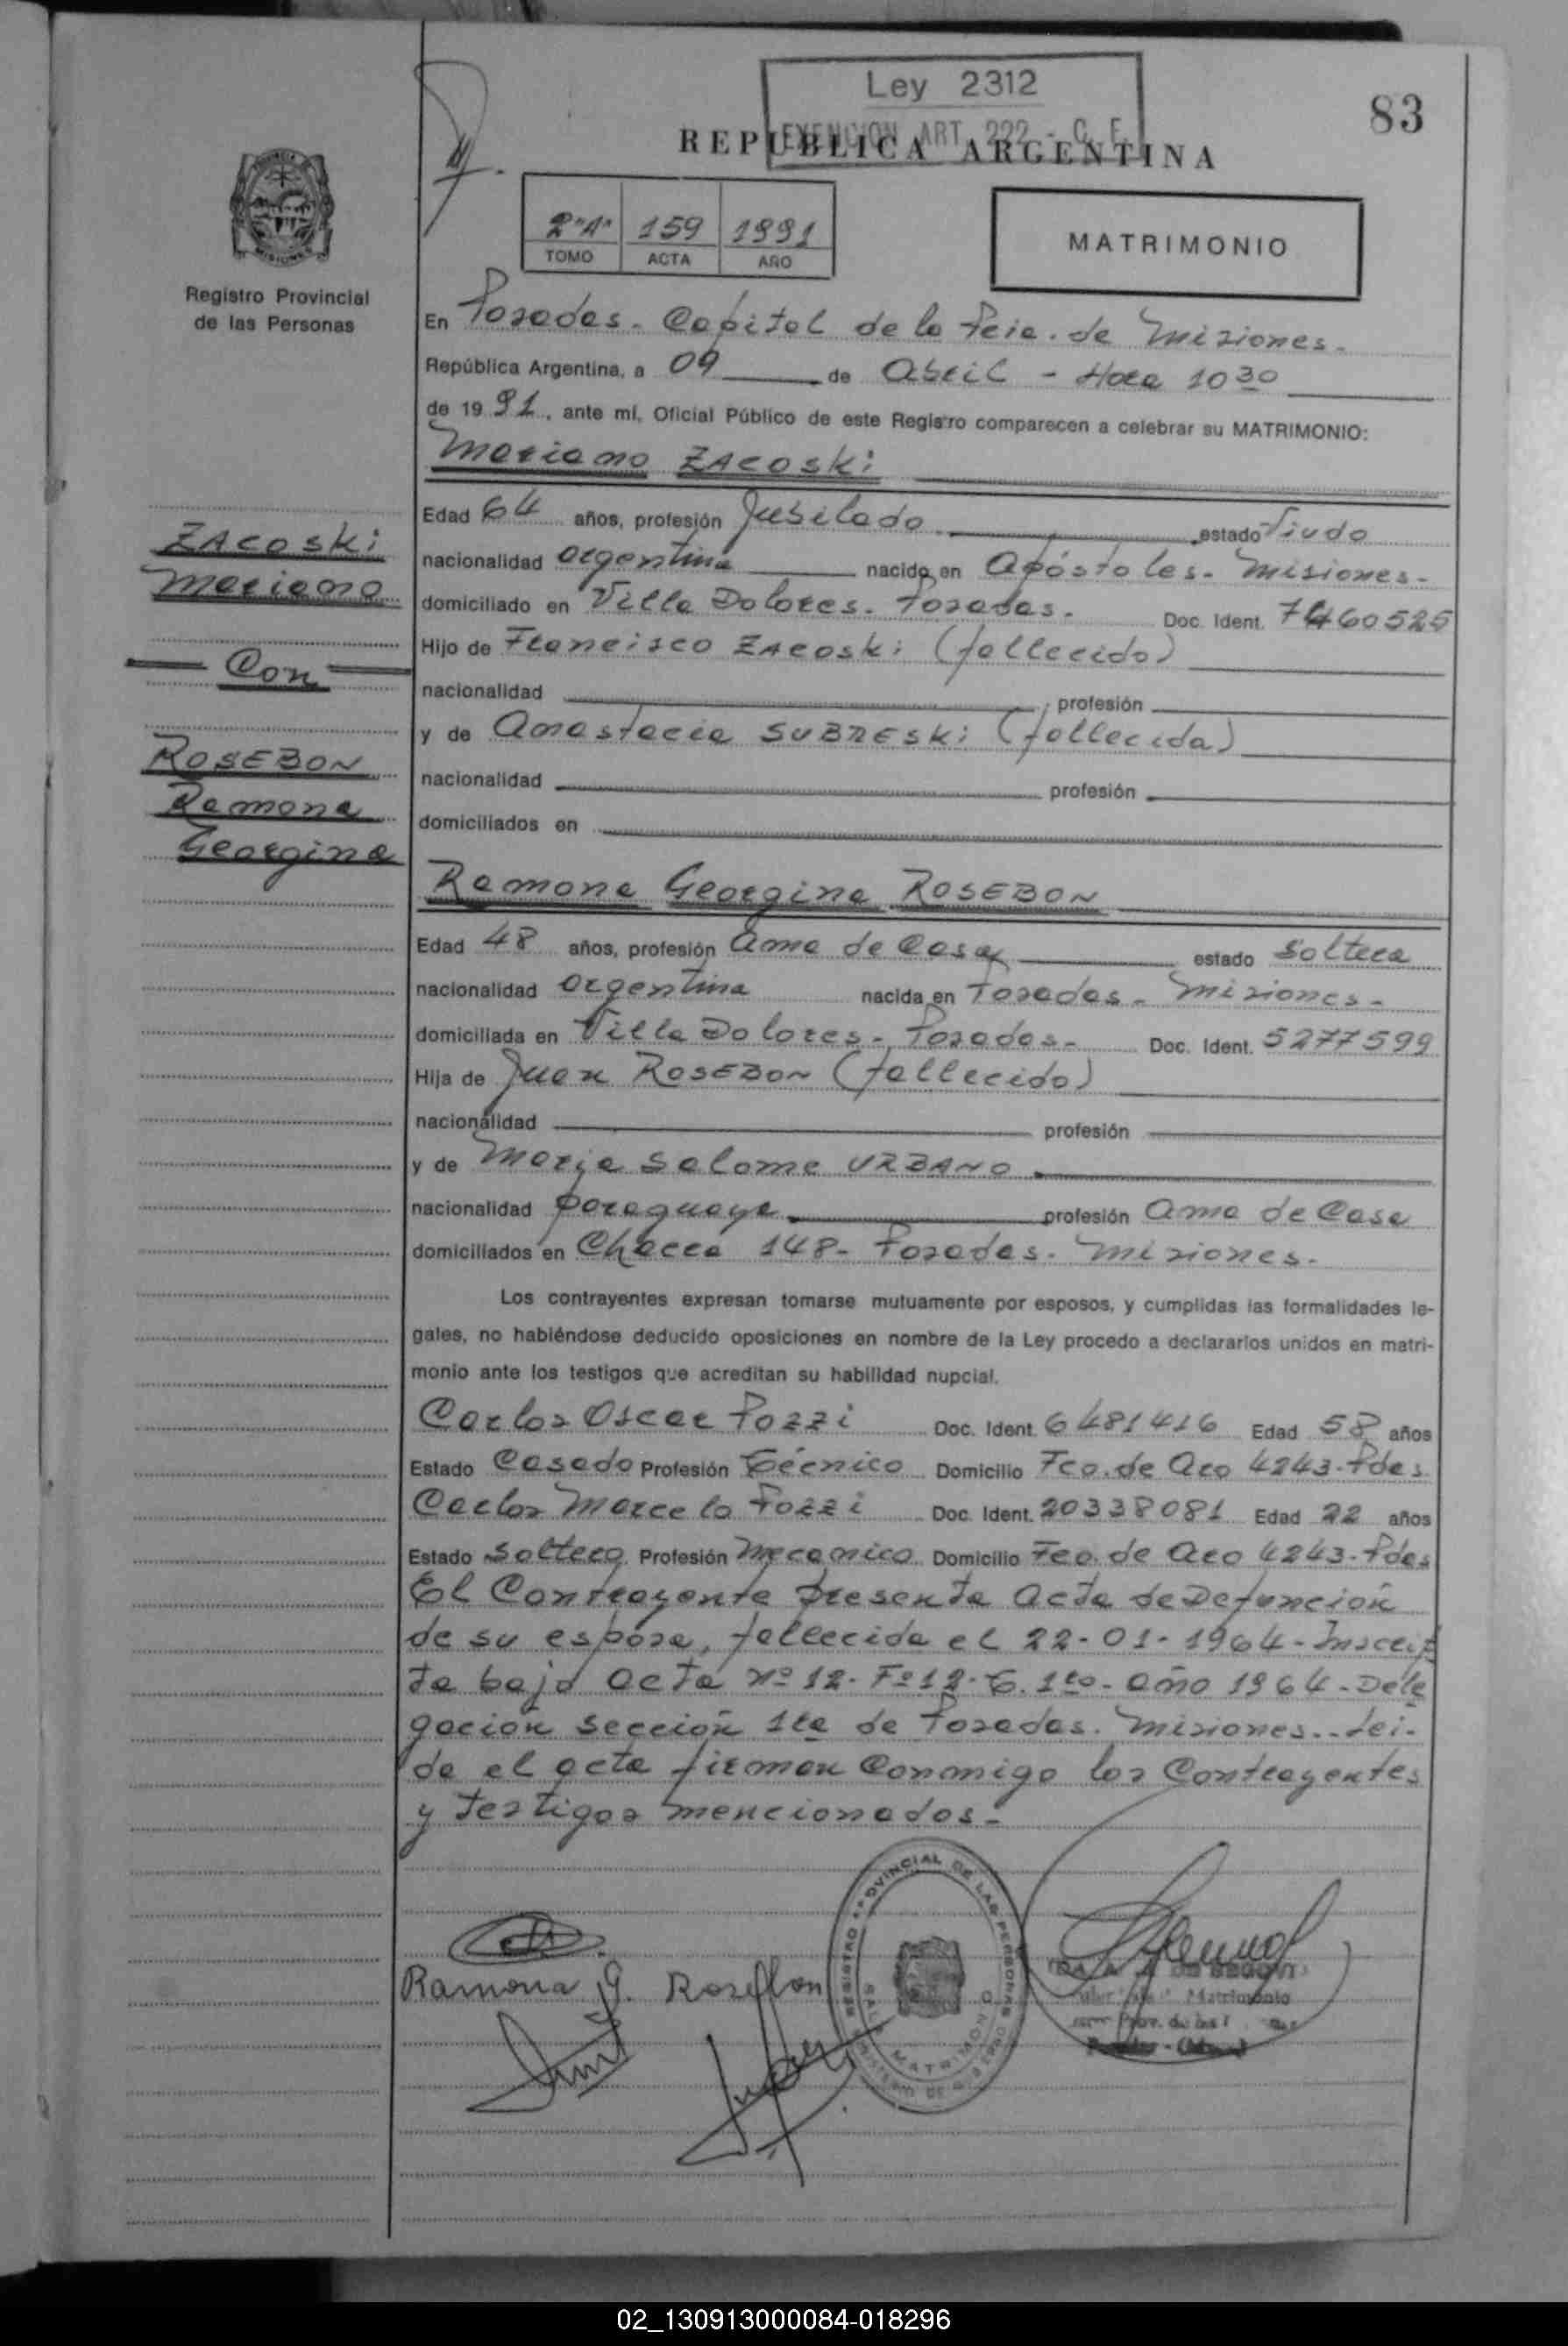 Ley 2312
EXENCION ART. 222 - C. F.
83
REPUBLICA ARGENTINA
2"A" 159 1991
TOMO ACTA AÑO
MATRIMONIO
Registro Provincial
de las Personas
En Posadas - Capital de la Pcia. de Misiones -
República Argentina, a 09 de Abril - Hora 10 30
de 1991, ante mí, Oficial Público de este Registro comparecen a celebrar su MATRIMONIO:
Mariano ZACOSKi
ZACOSKi
Mariano
Con
ROSEBON
Ramona
Georgina
Edad 64 años, profesión Jubilado estado Viudo
nacionalidad argentina nacido en Apóstoles - Misiones -
domiciliado en Villa Dolores - Posadas - Doc. Ident. 7460525
Hijo de Francisco ZACOSKi (fallecido)
nacionalidad profesión
y de Anastacia SUBRESKi (fallecida)
nacionalidad profesión
domiciliados en
Ramona Georgina ROSEBON
Edad 48 años, profesión Ama de Casa estado Soltera
nacionalidad argentina nacida en Posadas - Misiones -
domiciliada en Villa Dolores - Posadas - Doc. Ident. 5277599
Hija de Juan ROSEBON (fallecido)
nacionalidad profesión
y de Maria Salome URBANO
nacionalidad paraguaya profesión Ama de Casa
domiciliados en Chacra 148 - Posadas - Misiones -
Los contrayentes expresan tomarse mutuamente por esposos, y cumplidas las formalidades le-
gales, no habiéndose deducido oposiciones en nombre de la Ley procedo a declararlos unidos en matri-
monio ante los testigos que acreditan su habilidad nupcial.
Carlos Oscar Pozzi Doc. Ident. 6481416 Edad 58 años
Estado Casado Profesión Técnico Domicilio Fco. de Aro 4243 - Pdas
Carlos Marcelo Pozzi Doc. Ident. 20338081 Edad 22 años
Estado Soltero Profesión Mecanico Domicilio Fco. de Aro 4243 - Pdas
El Contrayente presenta Acta de Defunción
de su esposa, fallecida el 22-01-1964 - Inscrip
ta bajo Acta Nº 12 - Fº 12 - T. 1ro - Año 1964 - Dele
gación Sección 1ra de Posadas - Misiones - Lei-
da el acta firman Conmigo los Contrayentes
y testigos mencionados -
REGISTRO PROVINCIAL DE LAS PERSONAS
MATRIMONIO
Ramona G. Rosebon
Matrimonio
02_130913000084-018296